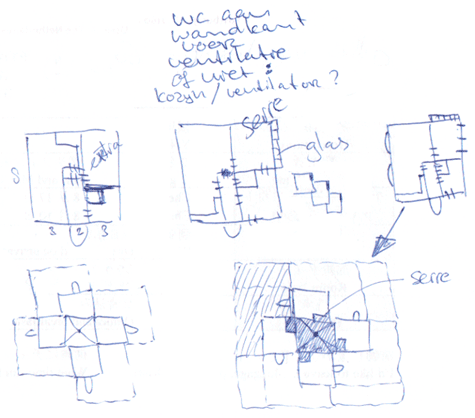 wc aan
wandkant
voor
ventilatie
of niet?
kozijn/ventilator?
serre
extra
glas
8
3 2 3
serre